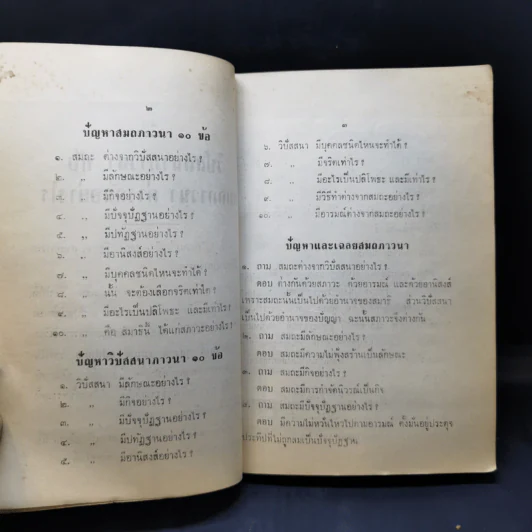 ๒
ปัญหาสมถภาวนา ๑๐ ข้อ
๑. สมถะ ต่างจากวิปัสสนาอย่างไร ?
๒. ,, มีลักษณะอย่างไร ?
๓. ,, มีกิจอย่างไร ?
๔. ,, มีปัจจุปัฏฐานอย่างไร ?
๕. ,, มีปทัฏฐานอย่างไร ?
๖. ,, มีอานิสงส์อย่างไร ?
๗. ,, มีบุคคลชนิดไหนจะทำได้ ?
๘. ,, นั้น จะต้องเลือกจริตเท่าไร ?
๙. ,, มีอะไรเป็นปลิโพธะ และมีเท่าไร ?
๑๐. ,, คือ สมาธินั้น ได้แก่สภาวะอย่างไร ?
ปัญหาวิปัสสนาภาวนา ๑๐ ข้อ
๑. วิปัสสนา มีลักษณะอย่างไร ?
๒. ,, มีกิจอย่างไร ?
๓. ,, มีปัจจุปัฏฐานอย่างไร ?
๔. ,, มีปทัฏฐานอย่างไร ?
๕. ,, มีอานิสงส์อย่างไร ?
๓
๖. วิปัสสนา มีบุคคลชนิดไหนจะทำได้ ?
๗. ,, มีจริตเท่าไร ?
๘. ,, มีอะไรเป็นปลิโพธะ และมีเท่าไร ?
๙. ,, มีวิธีทำต่างจากสมถะอย่างไร ?
๑๐. ,, มีอารมณ์ต่างจากสมถะอย่างไร ?
ปัญหาและเฉลยสมถภาวนา
๑. ถาม สมถะต่างจากวิปัสสนาอย่างไร ?
ตอบ ต่างกันด้วยสภาวะ ด้วยอารมณ์ และด้วยอานิสงส์
เพราะสมถะนั้นเป็นไปด้วยอำนาจของสมาธิ ส่วนวิปัสสนา
เป็นไปด้วยอำนาจของปัญญา ฉะนั้นสภาวะจึงต่างกัน
๒. ถาม สมถะมีลักษณะอย่างไร ?
ตอบ สมถะมีความไม่ฟุ้งสร้านเป็นลักษณะ
๓. ถาม สมถะมีกิจอย่างไร ?
ตอบ สมถะมีการกำจัดนิวรณ์เป็นกิจ
๔. ถาม สมถะมีปัจจุปัฏฐานอย่างไร ?
ตอบ มีความไม่หวั่นไหวไปตามอารมณ์ ตั้งมั่นอยู่ประดุจ
ประทีปที่ไม่ถูกลมเป็นปัจจุปัฏฐาน.